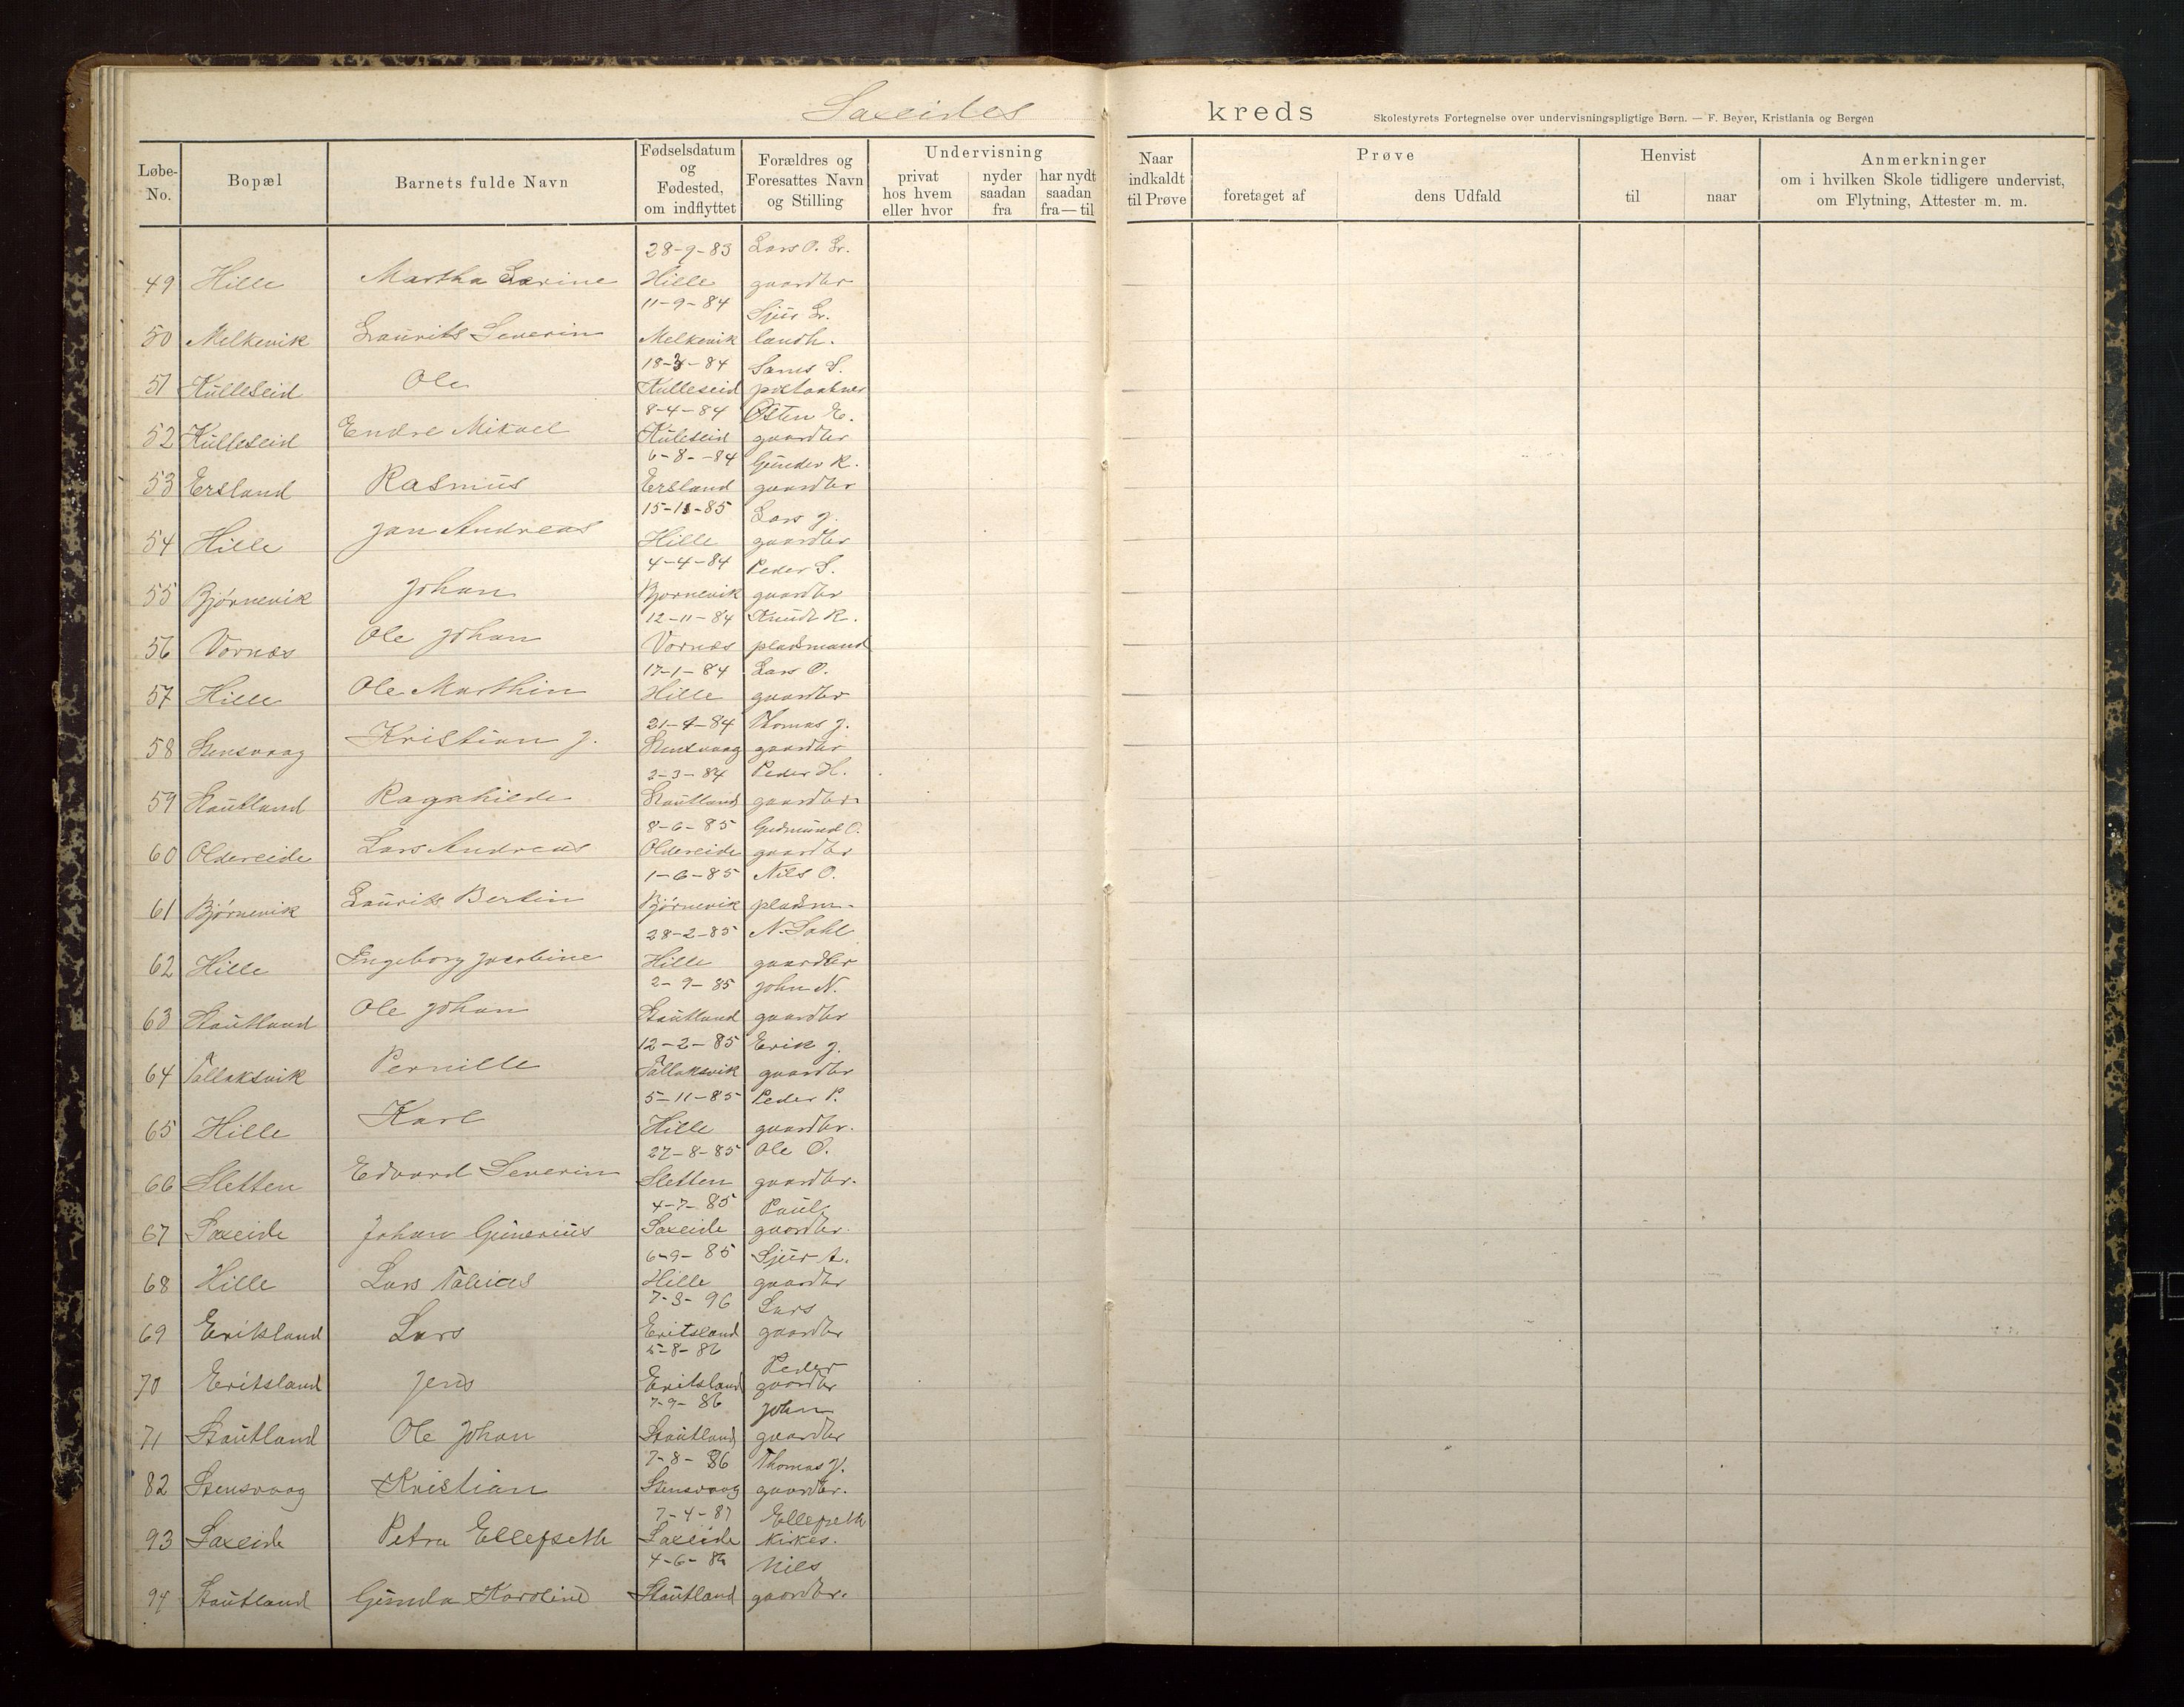 Saxeides kreds Skolestyrets Fortegnelse over undervisningspligtige Børn. — F. Beyer, Kristiania og Bergen
Løbe-No. Bopæl Barnets fulde Navn Fødselsdatum og Fødested, om indflyttet Forældres og Foresattes Navn og Stilling Undervisning privat hos hvem eller hvor nyder saadan fra har nydt saadan fra — til Naar indkaldt til Prøve Prøve foretaget af dens Udfald Henvist til naar Anmerkninger om i hvilken Skole tidligere undervist, om Flytning, Attester m. m.
28-9-83 Lars O. Sr.
49 Hille Martha Larine Hille gaardbr
11-9-84 Sjur Sr.
50 Melkevik Laurits Severin Melkevik landh.
18-3-84 S.
51 Kulleseid Ole Kulleseid
8-4-84 Østen E.
52 Kulleseid Endre Mikael Kuleseid gaardbr
6-8--84 Gunder K.
53 Ersland Rasmus Ersland gaardbr
15-11-85 Lars J.
54 Hille Jan Andreas Hille gaardbr
4-4-84 Peder S.
55 Bjørnevik Johan Bjornevik gaardbr
12-11-84 Knudt K.
56 Vornæs Ole Johan Vornæs pladsmand
17-1-84 Lars O.
57 Hille Ole Marthin Hille gaardbr
21-4-84 Thomas J.
58 Stensvaag Kristian J. Stensvaag gaardbr
2-3-84 Peder H.
59 Stautland Ragnhilde Stautland gaardbr
8-6-85 Gudmund O.
60 Oldereide Lars Andreas Oldereide gaardbr
1-6-85 Nils O.
61 Bjørnevik Laurits Bertin Bjørnevik pladsm.
28-2-85 N. Dahl
62 Hille Ingeborg Jacobine Hille gaardbr
2-9-85 John N.
63 Stautland Ole Johan Stautland gaardbr
12-2-85 Erik J.
64 Tallaksvik Pernille Tallaksvik gaardbr
5-11-85 Peder P.
65 Hille Karl Hille gaardbr.
27-8-85 Ole O.
66 Sletten Edvard Severin Sletten gaardbr.
4-7-85 Paul
67 Saxeide Johan Gunerius Saxeide gaardbr.
6-9-85 Sjur A.
68 Hille Lars Tobias Hille gaardbr
7-3-96 Lars
69 Eritsland Lars Eritsland gaardbr
5-8-86 Peder
70 Eritsland Jens Eritsland gaardbr
7-9-86 John
71 Stautland Ole Johan Stautland gaardbr
7-8-86 Thomas J.
82 Stensvaag Kristian Stensvaag gaardbr.
7-4-87 Ellefseth
93 Saxeide Petra Ellefseth Saxeide kirkes.
4-6-86 Nils
94 Stautland Gunda Karoline Stautland gaardbr.